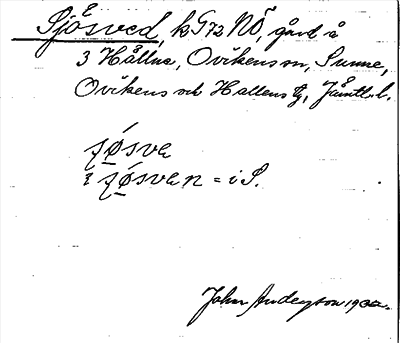 Sjösved, k G72 NÖ, gård å
3 Hållne, Ovikens sn, Sunne,
Ovikens och Hallens tg, Jämtl. l.
sjósve
i sjósven = i S.
John Andersson 19